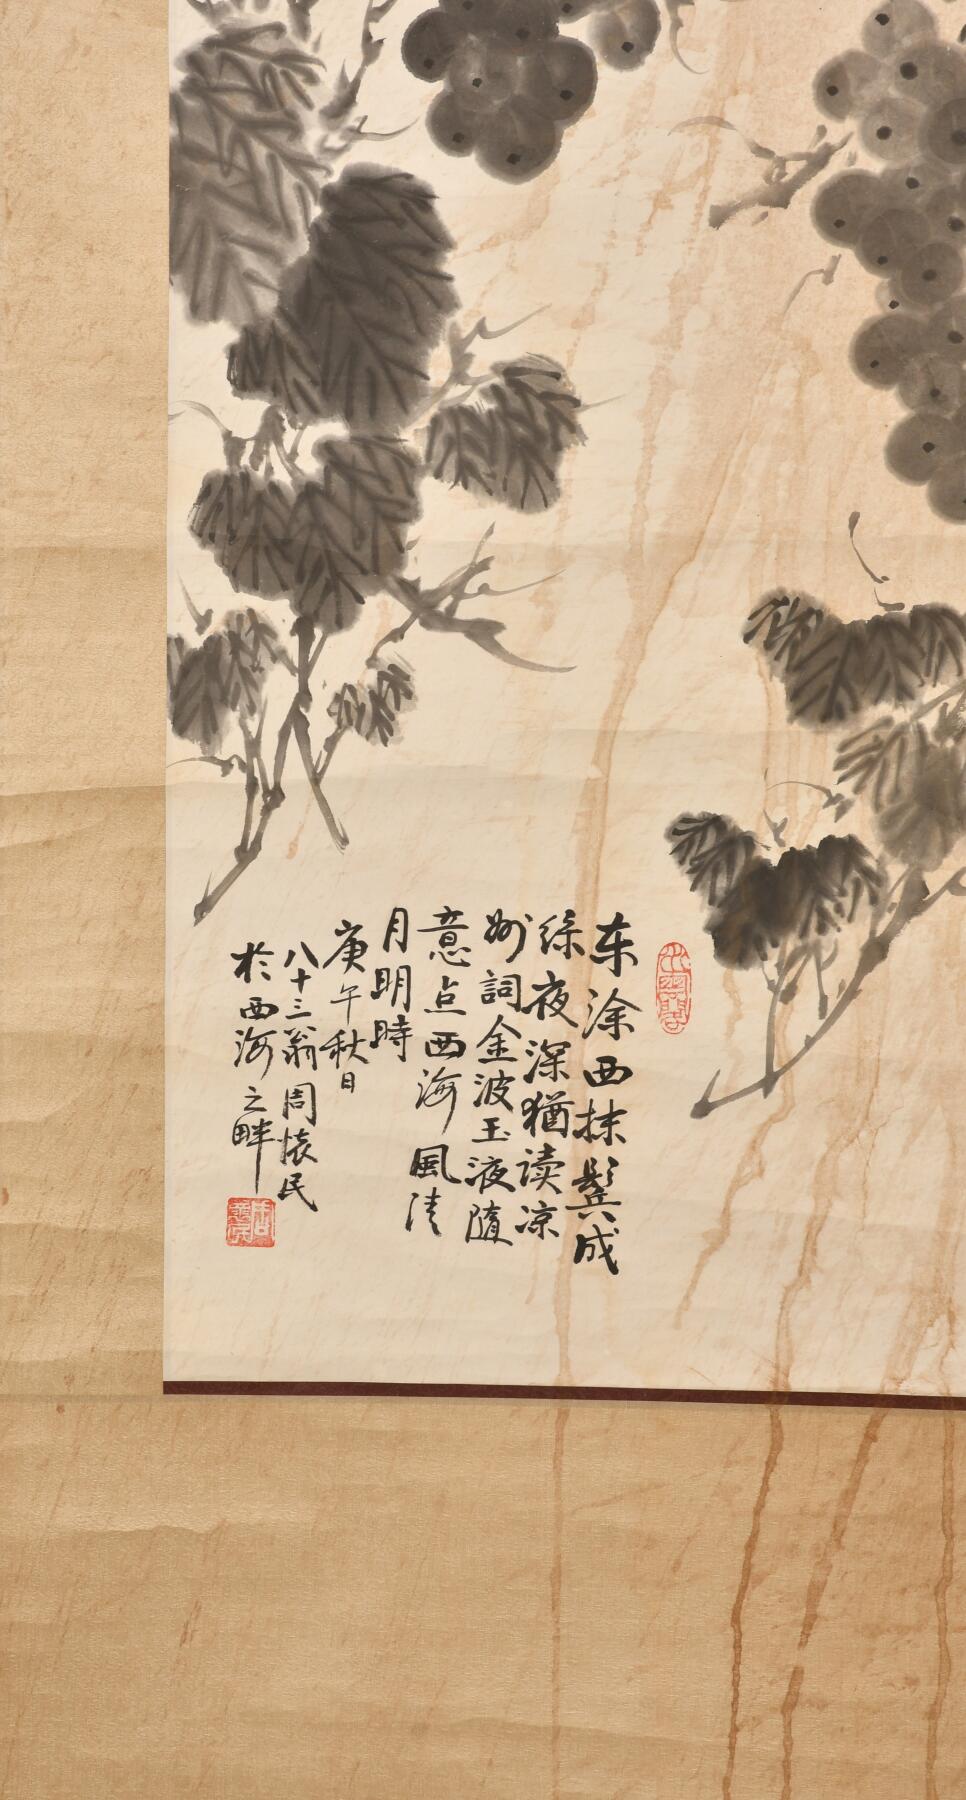 东涂西抹鬓成
丝夜深犹读凉
州詞金波玉液隨
意点西海風清
月明時
庚午秋日
八十三翁周懐民
於西海之畔